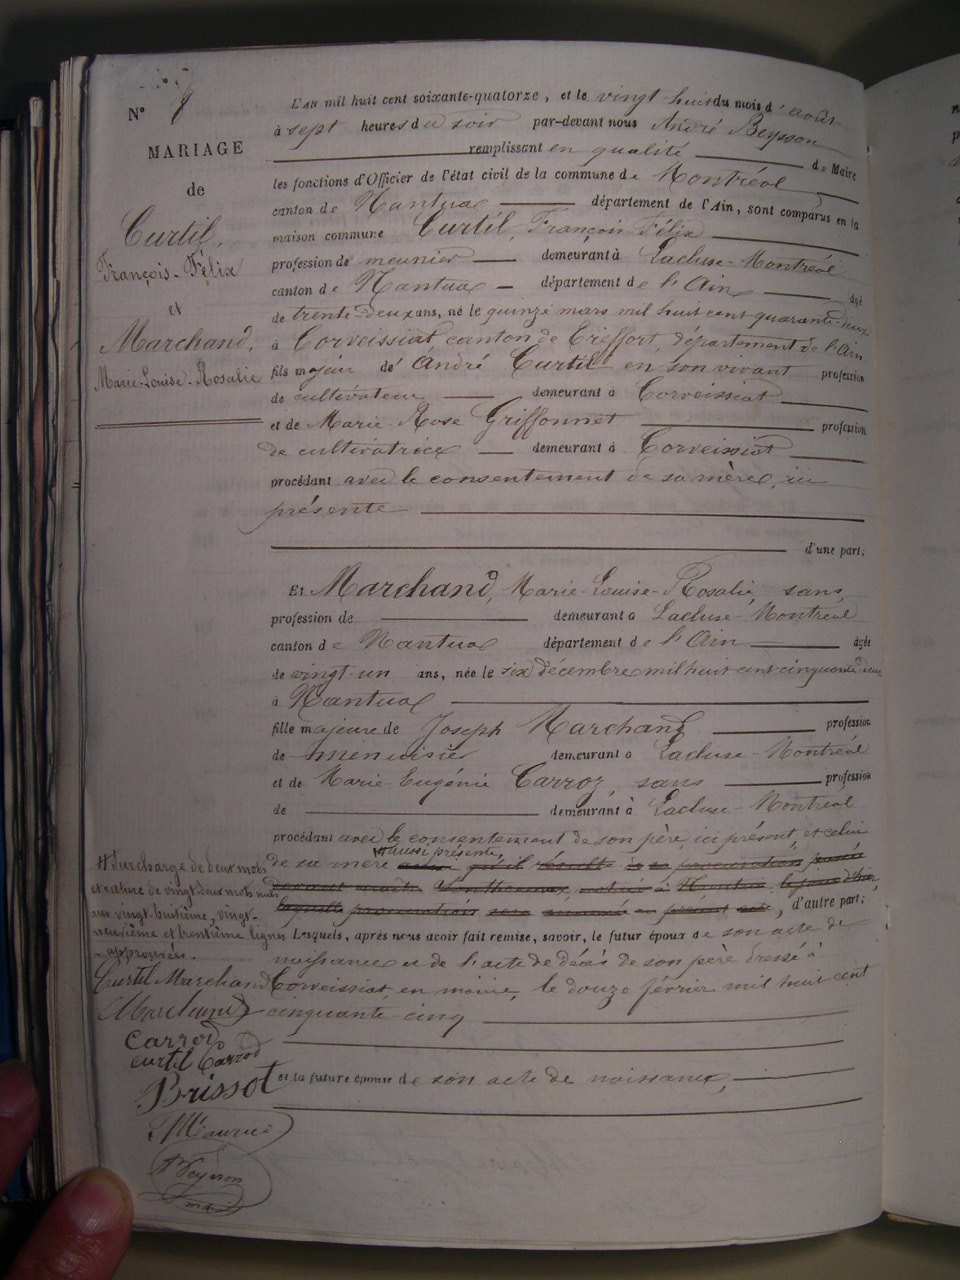 N° 8
MARIAGE
de
Curtil,
François-Félix
et
Marchand,
Marie-Louise-Rosalie
L'an mil huit cent soixante-quatorze, et le vingt-huit du mois d'août
à sept heures du soir par-devant nous André Beysson
remplissant en qualité de Maire
les fonctions d'Officier de l'état civil de la commune de Montréal
canton de Nantua département de l'Ain, sont comparus en la
maison commune Curtil, François-Félix
profession de meunier demeurant à Lacluse-Montréal
canton de Nantua département de l'Ain âgé
de trente-deux ans, né le quinze mars mil huit cent quarante-deux
à Corveissiat canton de Treffort, département de l'Ain
fils majeur de André Curtil en son vivant profession
de cultivateur demeurant à Corveissiat
et de Marie-Rose Griffonnet profession
de cultivatrice demeurant à Corveissiat
procédant avec le consentement de sa mère, ici
présente
d'une part;
Et Marchand, Marie-Louise-Rosalie, sans
profession de demeurant à Lacluse-Montréal
canton de Nantua département de l'Ain âgée
de vingt-un ans, née le six décembre mil huit cent cinquante-deux
à Nantua
fille majeure de Joseph Marchand profession
de menuisier demeurant à Lacluse-Montréal
et de Marie-Eugénie Carroz, sans profession
de demeurant à Lacluse-Montréal
procédant avec le consentement de son père, ici présent, et celui
de sa mère aussi présente, qu'il résulte de sa procuration passée
devant maître notaire à Nantua
laquelle procuration sera annexée au présent acte, d'autre part;
Lesquels, après nous avoir fait remise, savoir, le futur époux de son acte de
naissance et de l'acte de décès de son père dressé à
Corveissiat, en mairie, le douze février mil huit cent
cinquante-cinq
et la future épouse de son acte de naissance,
surcharge de deux mots
et rature de vingt-deux mots aux
vingt-huitième, vingt-
neuvième et trentième lignes
approuvés.
Curtil Marchand
Marchand
Carrod
Curtil Carrod
Brissot
Maurice
A Beysson